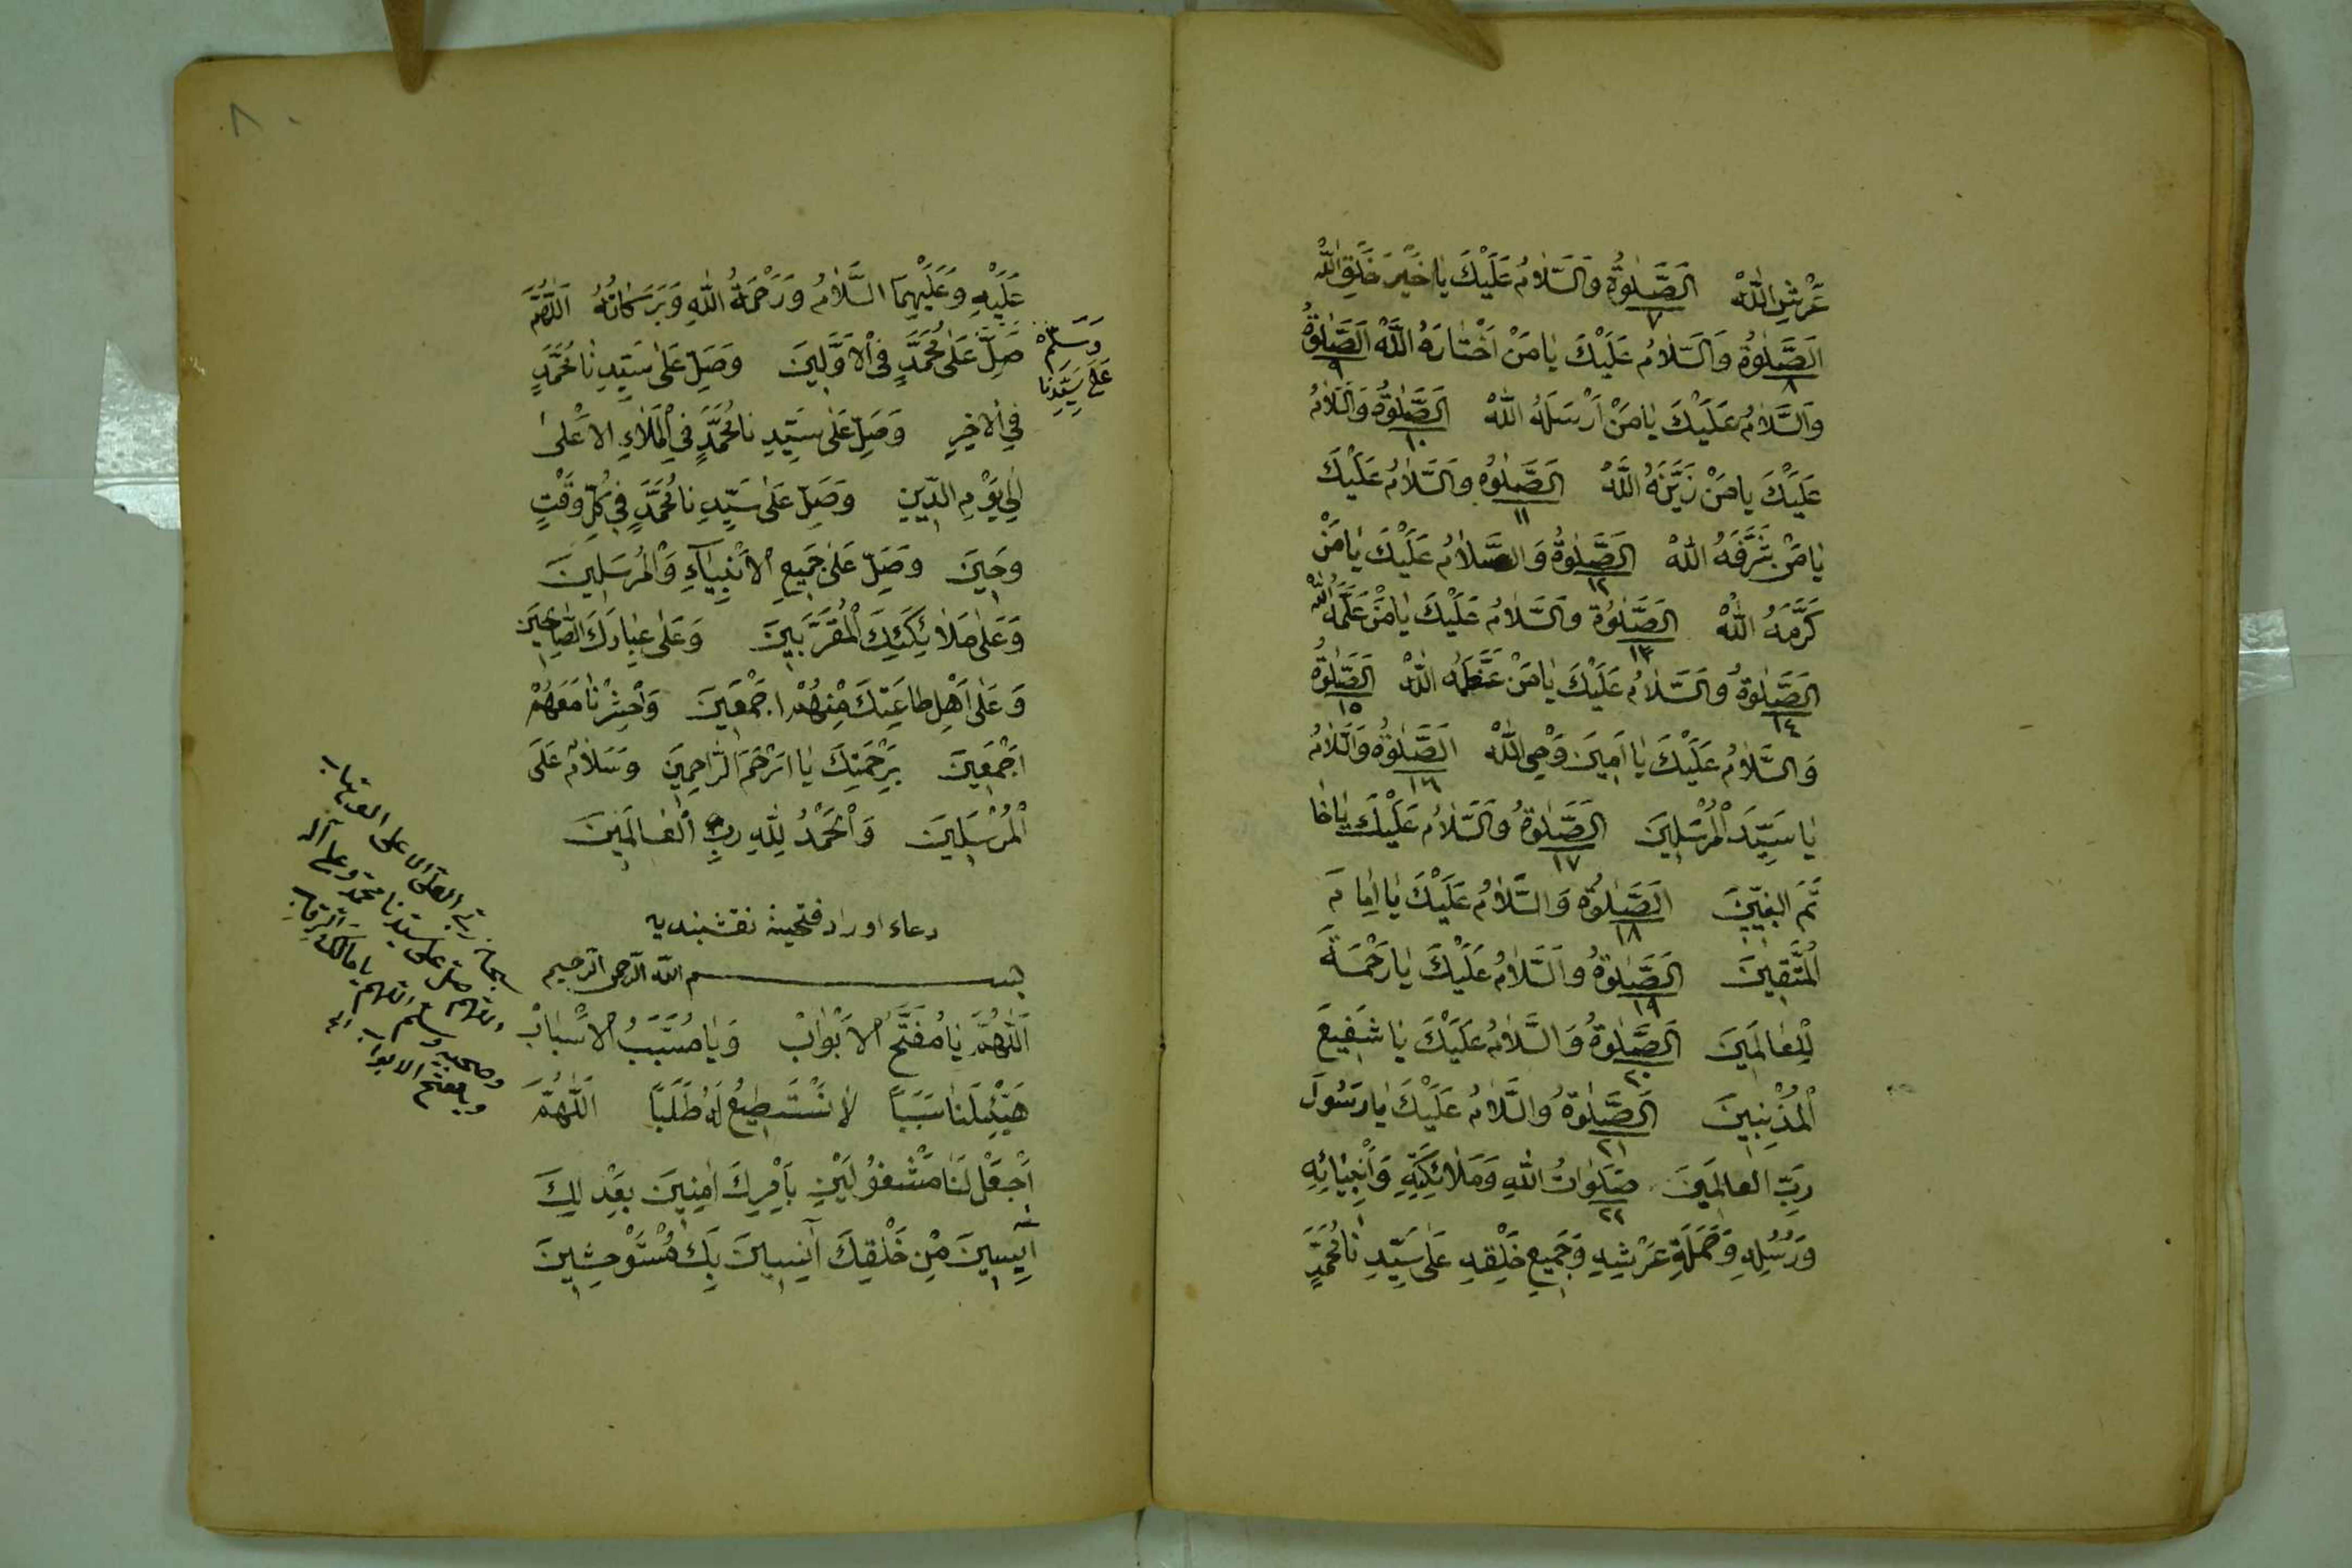 عَرْشِ اللّٰهْ اَلصَّلٰوةُ وَالسَّلَامُ عَلَيْكَ يَا خَيْرَ خَلْقِ اللّٰهْ
٧
اَلصَّلٰوةُ وَالسَّلَامُ عَلَيْكَ يَا مَنْ اَخْتَارَهُ اللّٰهْ اَلصَّلٰوةُ
٨ ٩
وَالسَّلَامُ عَلَيْكَ يَا مَنْ اَرْسَلَهُ اللّٰهْ اَلصَّلٰوةُ وَالسَّلَامُ
١٠
عَلَيْكَ يَا مَنْ زَيَّنَهُ اللّٰهْ اَلصَّلٰوةُ وَالسَّلَامُ عَلَيْكَ
١١
يَا مَنْ شَرَّفَهُ اللّٰهْ اَلصَّلٰوةُ وَالسَّلَامُ عَلَيْكَ يَا مَنْ
١٢
كَرَّمَهُ اللّٰهْ اَلصَّلٰوةُ وَالسَّلَامُ عَلَيْكَ يَا مَنْ عَلَّمَهُ اللّٰهْ
١٣
اَلصَّلٰوةُ وَالسَّلَامُ عَلَيْكَ يَا مَنْ عَظَّمَهُ اللّٰهْ اَلصَّلٰوةُ
١٤ ١٥
وَالسَّلَامُ عَلَيْكَ يَا اَمِينَ وَحْىِ اللّٰهْ اَلصَّلٰوةُ وَالسَّلَامُ
١٦
يَا سَيِّدَ الْمُرْسَلِينَ اَلصَّلٰوةُ وَالسَّلَامُ عَلَيْكَ يَا خَا
١٧
تَمَ النبيّينَ اَلصَّلٰوةُ وَالسَّلَامُ عَلَيْكَ يَا اِمَامَ
١٨
الْمُتَّقِينَ اَلصَّلٰوةُ وَالسَّلَامُ عَلَيْكَ يَا رَحْمَةً
١٩
لِلْعَالَمِينَ اَلصَّلٰوةُ وَالسَّلَامُ عَلَيْكَ يَا شَفِيعَ
٢٠
الْمُذْنِبِينَ اَلصَّلٰوةُ وَالسَّلَامُ عَلَيْكَ يَا رَسُولَ
٢١
رَبِّ الْعَالَمِينَ صَلَوَاتُ اللّٰهِ وَمَلَائِكَتِهِ وَاَنْبِيَائِهِ
٢٢
وَرُسُلِهِ وَحَمَلَةِ عَرْشِهِ وَجَمِيعِ خَلْقِهِ عَلَى سَيِّدِ نَا مُحَمَّدٍ
٨٠
عَلَيْهِ وَعَلَيْهِمَ السَّلَامُ وَرَحْمَةُ اللّٰهِ وَبَرَكَاتُهُ اَللّٰهُمَّ
صَلِّ عَلَى مُحَمَّدٍ فِى الْاَوَّلِينَ وَصَلِّ عَلَى سَيِّدِ نَا مُحَمَّدٍ
وَسَلِّمْ
عَلَى سَيِّدِنَا
فِى الْاٰخِرِ وَصَلِّ عَلَى سَيِّدِ نَا مُحَمَّدٍ فِى الْمَلَاءِ الْاَعْلَى
اِلَى يَوْمِ الدِّينِ وَصَلِّ عَلَى سَيِّدِ نَا مُحَمَّدٍ فِى كُلِّ وَقْتٍ
وَحِينَ وَصَلِّ عَلَى جَمِيعِ الْاَنْبِيَاءِ وَالْمُرْسَلِينَ
وَعَلَى مَلَائِكَتِكَ الْمُقَرَّبِينَ وَعَلَى عِبَادِكَ الصَّالِحِينَ
وَعَلَى اَهْلِ طَاعَتِكَ مِنْهُمْ اَجْمَعِينَ وَاحْشِرْنَا مَعَهُمْ
اَجْمَعِينَ بِرَحْمَتِكَ يَا اَرْحَمَ الرَّاحِمِينَ وَسَلَامٌ عَلَى
الْمُرْسَلِينَ وَالْحَمْدُ لِلّٰهِ رَبِّ الْعَالَمِينَ
دعاء اوراد فتحيه نقشبنديه
بسم الله الرّحمن الرّحيم
اَللّٰهُمَّ يَا مُفَتِّحَ الْاَبْوَابْ وَيَا مُسَبِّبَ الْاَسْبَابْ
هَيِّئْ لَنَا سَبَبًا لَا نَسْتَطِيعُ لَهُ طَلَبًا اَللّٰهُمَّ
اَجْعَلْ لَنَا مَشْغُولَيْنِ بِاَمْرِكَ اٰمِنِينَ بِعَدْلِكَ
اٰيِسِينَ مِنْ خَلْقِكَ اٰنِسِينَ بِكَ مُسْتَوْحِشِينَ
سبحان ربّى العلىّ الاعلى الوهّاب
اللّهم صلّ على سيّدنا محمّد وعلى آله
وصحبه وسلّم اللّهم يا مالك الرّقاب
ويا مفتّح الابواب الخ